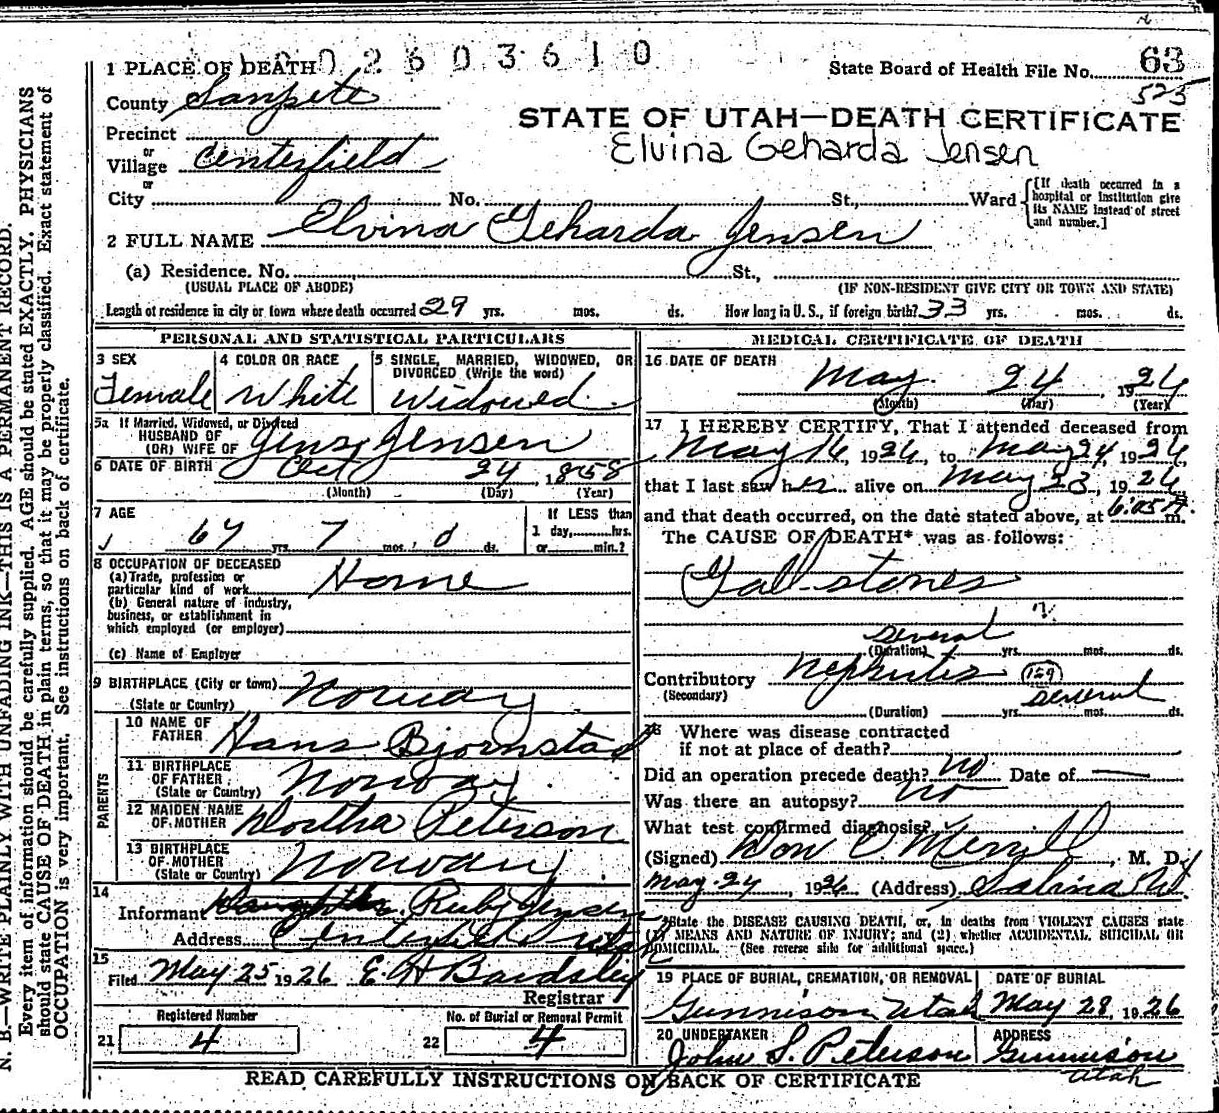 1 PLACE OF DEATH
0 2 6 0 3 6 1 0
State Board of Health File No. 63
525
County Sanpete
STATE OF UTAH—DEATH CERTIFICATE
Elvina Geharda Jensen
Precinct
or
Village Centerfield
or
City No. St., Ward
[If death occurred in a hospital or institution give its NAME instead of street and number.]
2 FULL NAME Elvina Geharda Jensen
(a) Residence. No. St.,
(USUAL PLACE OF ABODE) (IF NON-RESIDENT GIVE CITY OR TOWN AND STATE)
Length of residence in city or town where death occurred 29 yrs. mos. ds. How long in U. S., if foreign birth? 33 yrs. mos. ds.
PERSONAL AND STATISTICAL PARTICULARS
3 SEX
Female
4 COLOR OR RACE
White
5 SINGLE, MARRIED, WIDOWED, OR
DIVORCED (Write the word)
Widowed
5a If Married, Widowed, or Divorced
HUSBAND OF
(OR) WIFE OF Jens Jensen
6 DATE OF BIRTH Oct 24, 1858
(Month) (Day) (Year)
7 AGE
67 yrs. 7 mos. 0 ds.
If LESS than
1 day, hrs.
or min.?
8 OCCUPATION OF DECEASED
(a) Trade, profession or
particular kind of work Home
(b) General nature of industry,
business, or establishment in
which employed (or employer)
(c) Name of Employer
9 BIRTHPLACE (City or town) Norway
(State or Country)
PARENTS
10 NAME OF
FATHER Hans Bjornstad
11 BIRTHPLACE
OF FATHER Norway
(State or Country)
12 MAIDEN NAME
OF MOTHER Dortha Peterson
13 BIRTHPLACE
OF MOTHER Norway
(State or Country)
14
Informant Daughter Ruby Jensen
Address Centerfield Utah
15
Filed May 25 1926 E H Bardsley
Registrar
Registered Number
21 4
No. of Burial or Removal Permit
22 4
MEDICAL CERTIFICATE OF DEATH
16 DATE OF DEATH
May 24 1926
(Month) (Day) (Year)
17 I HEREBY CERTIFY, That I attended deceased from
May 16, 1926, to May 24, 1926
that I last saw her alive on May 23, 1926
and that death occurred, on the date stated above, at 6:05 A. m.
The CAUSE OF DEATH* was as follows:
Gall stones
several
(Duration) yrs. mos. ds.
Contributory Nephritis 129
(Secondary)
several
(Duration) yrs. mos. ds.
18 Where was disease contracted
if not at place of death?
Did an operation precede death? No Date of —
Was there an autopsy? No
What test confirmed diagnosis?
(Signed) Don C Merrill, M. D.
May 24, 1926 (Address) Salina Ut
*State the DISEASE CAUSING DEATH, or, in deaths from VIOLENT CAUSES state
(1) MEANS AND NATURE OF INJURY; and (2) whether ACCIDENTAL, SUICIDAL OR
HOMICIDAL. (See reverse side for additional space.)
19 PLACE OF BURIAL, CREMATION, OR REMOVAL
Gunnison Utah
DATE OF BURIAL
May 28, 1926
20 UNDERTAKER
John S. Peterson
ADDRESS
Gunnison
Utah
READ CAREFULLY INSTRUCTIONS ON BACK OF CERTIFICATE
N. B.—WRITE PLAINLY WITH UNFADING INK—THIS IS A PERMANENT RECORD.
Every item of information should be carefully supplied. AGE should be stated EXACTLY. PHYSICIANS
should state CAUSE OF DEATH in plain terms, so that it may be properly classified. Exact statement of
OCCUPATION is very important. See instructions on back of certificate.